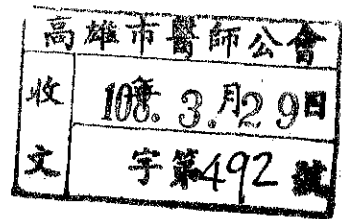 高雄市醫師公會
收文
108年3.月29日
字第492號